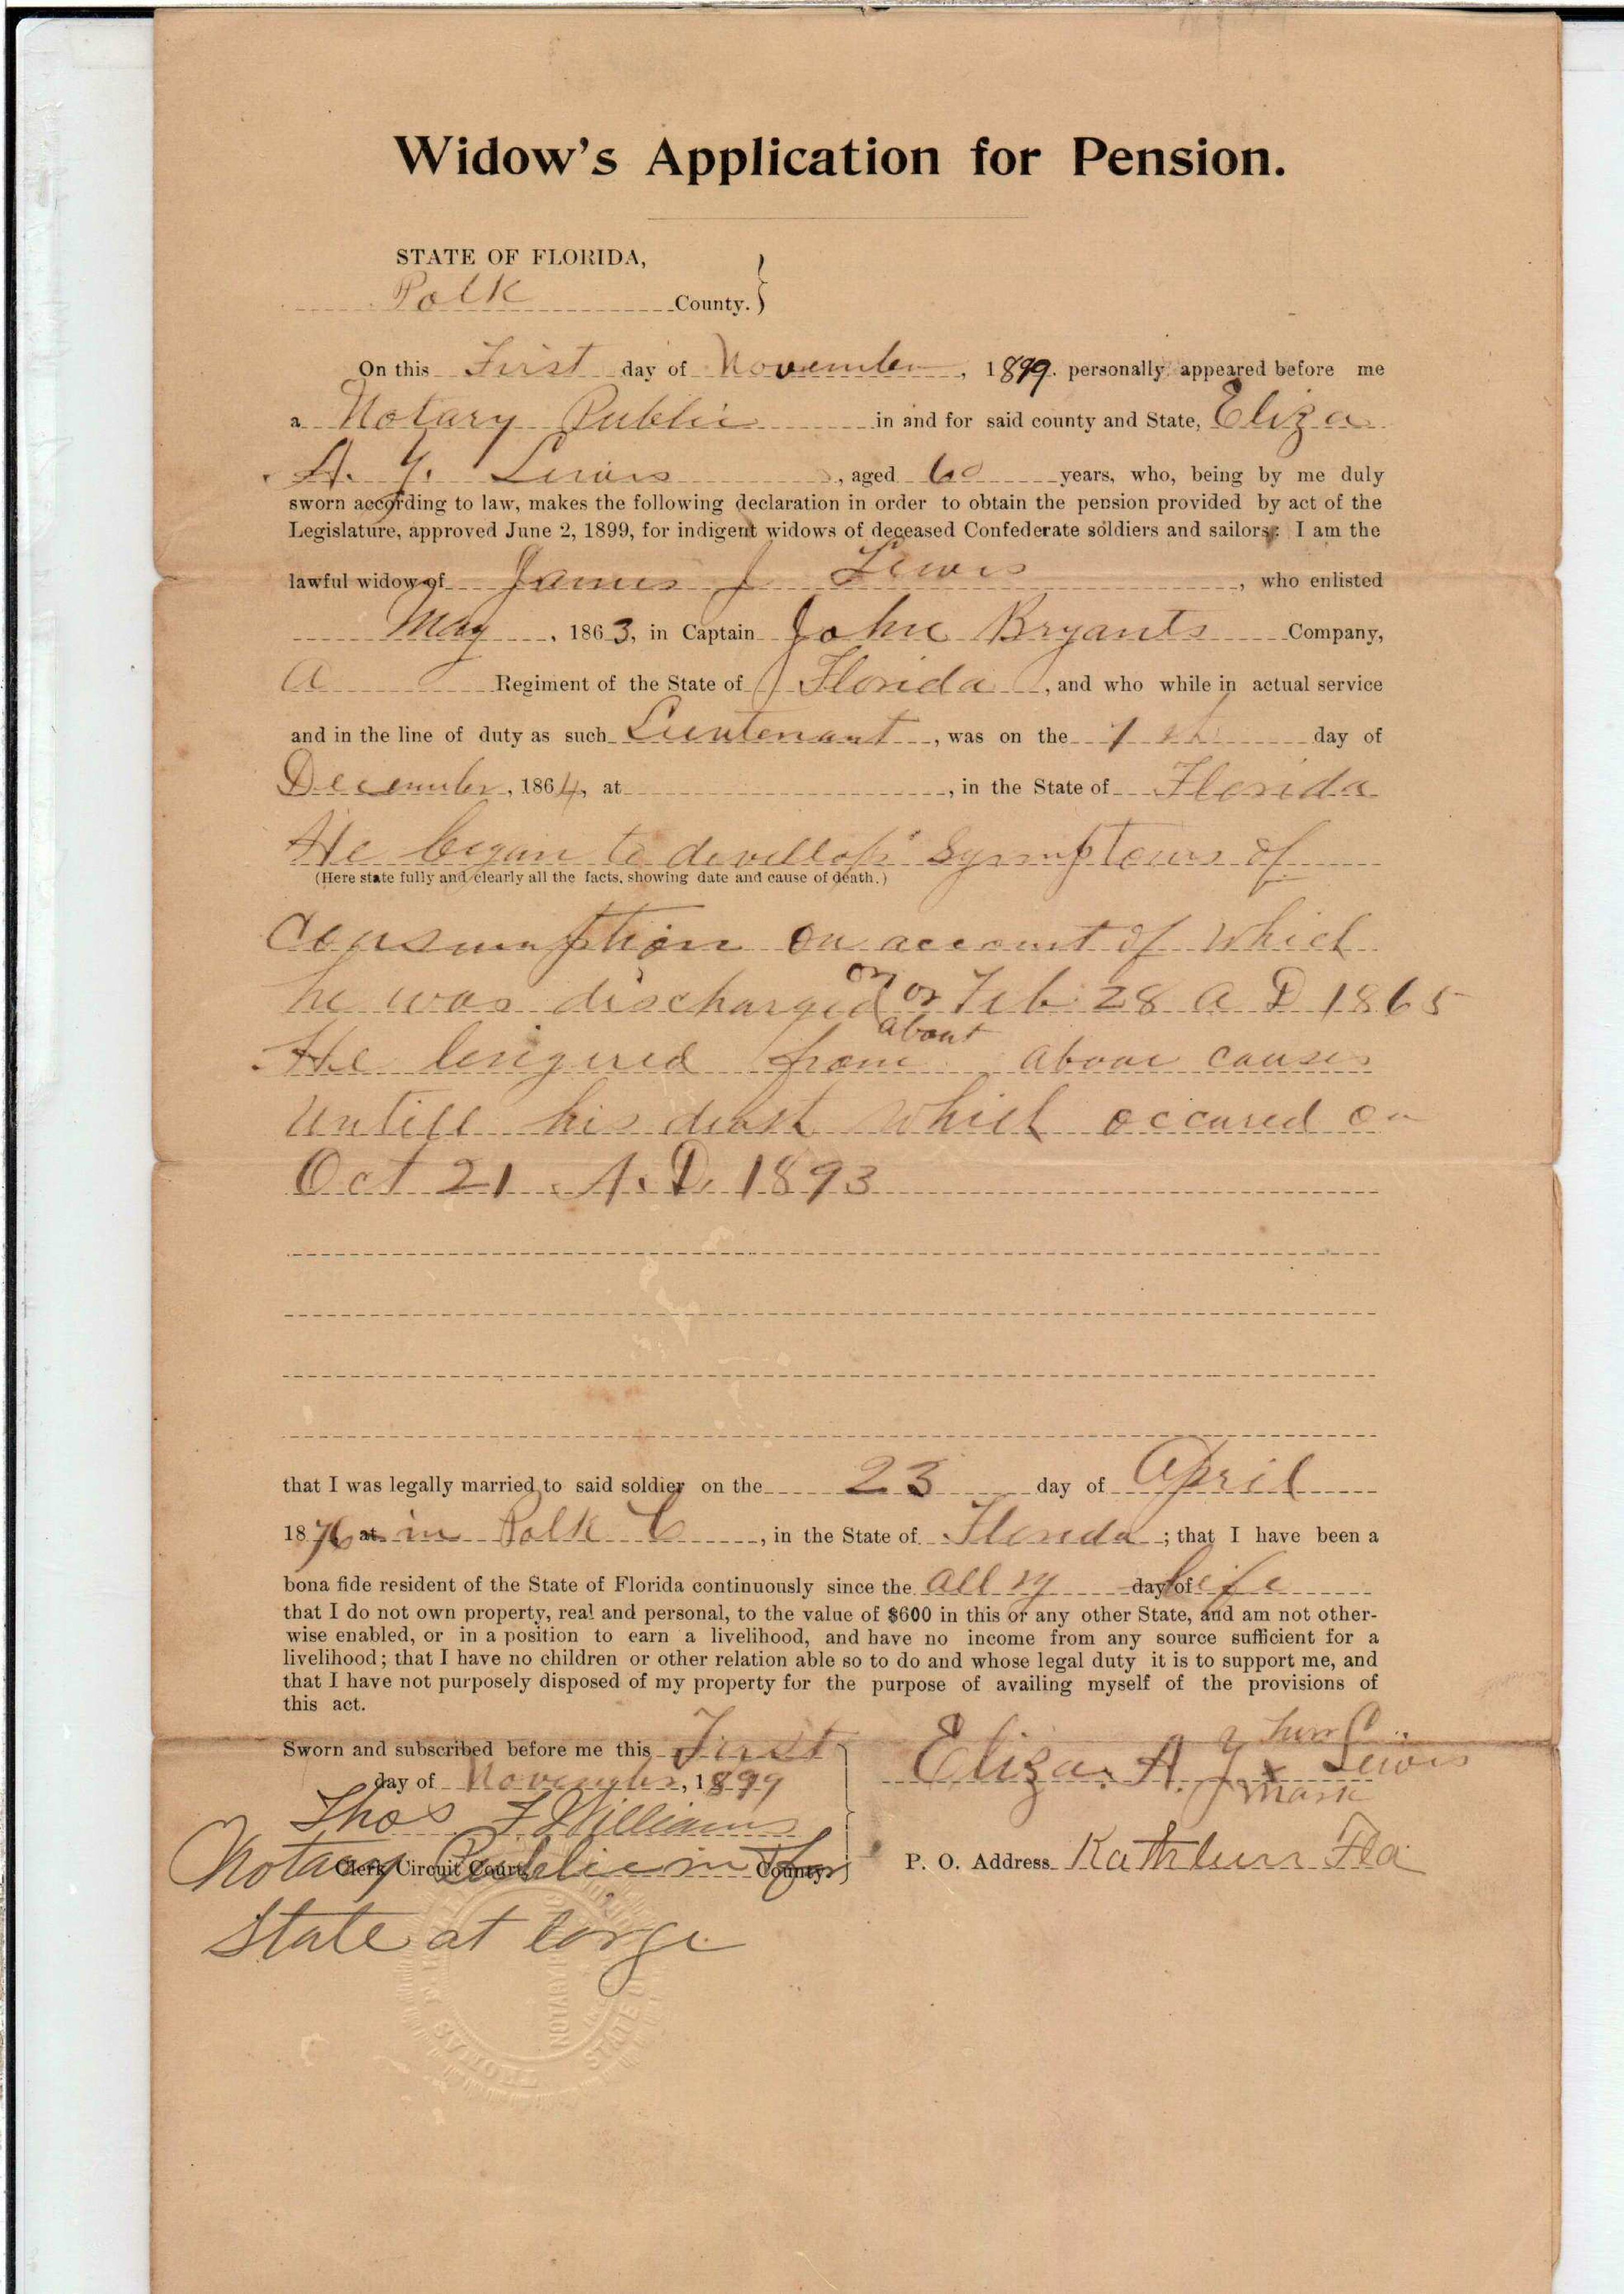 Widow's Application for Pension.
STATE OF FLORIDA,
Polk County. }
On this First day of November, 1899. personally appeared before me
a Notary Public in and for said county and State, Eliza
A. Y. Lewis, aged 60 years, who, being by me duly
sworn according to law, makes the following declaration in order to obtain the pension provided by act of the
Legislature, approved June 2, 1899, for indigent widows of deceased Confederate soldiers and sailors: I am the
lawful widow of James J Lewis, who enlisted
May, 1863, in Captain John Bryants Company,
A Regiment of the State of Florida, and who while in actual service
and in the line of duty as such Lieutenant, was on the 1 day of
December, 1864, at , in the State of Florida
He began to devellop Symptoms of
(Here state fully and clearly all the facts, showing date and cause of death.)
Consumption on account of which
he was discharged on or about Feb 28 A D 1865
He lingered from above causes
untill his death which occured on
Oct 21 A.D. 1893
that I was legally married to said soldier on the 23 day of April
1876 at in Polk C, in the State of Florida; that I have been a
bona fide resident of the State of Florida continuously since the all my day of life
that I do not own property, real and personal, to the value of $600 in this or any other State, and am not other-
wise enabled, or in a position to earn a livelihood, and have no income from any source sufficient for a
livelihood; that I have no children or other relation able so to do and whose legal duty it is to support me, and
that I have not purposely disposed of my property for the purpose of availing myself of the provisions of
this act.
Sworn and subscribed before me this First
day of November, 1899
Thos F Williams
Clerk Circuit Court County.
Notary Public in & for
State at large
Eliza. A. Y x Lewis
mark
P. O. Address Kathleen Fla